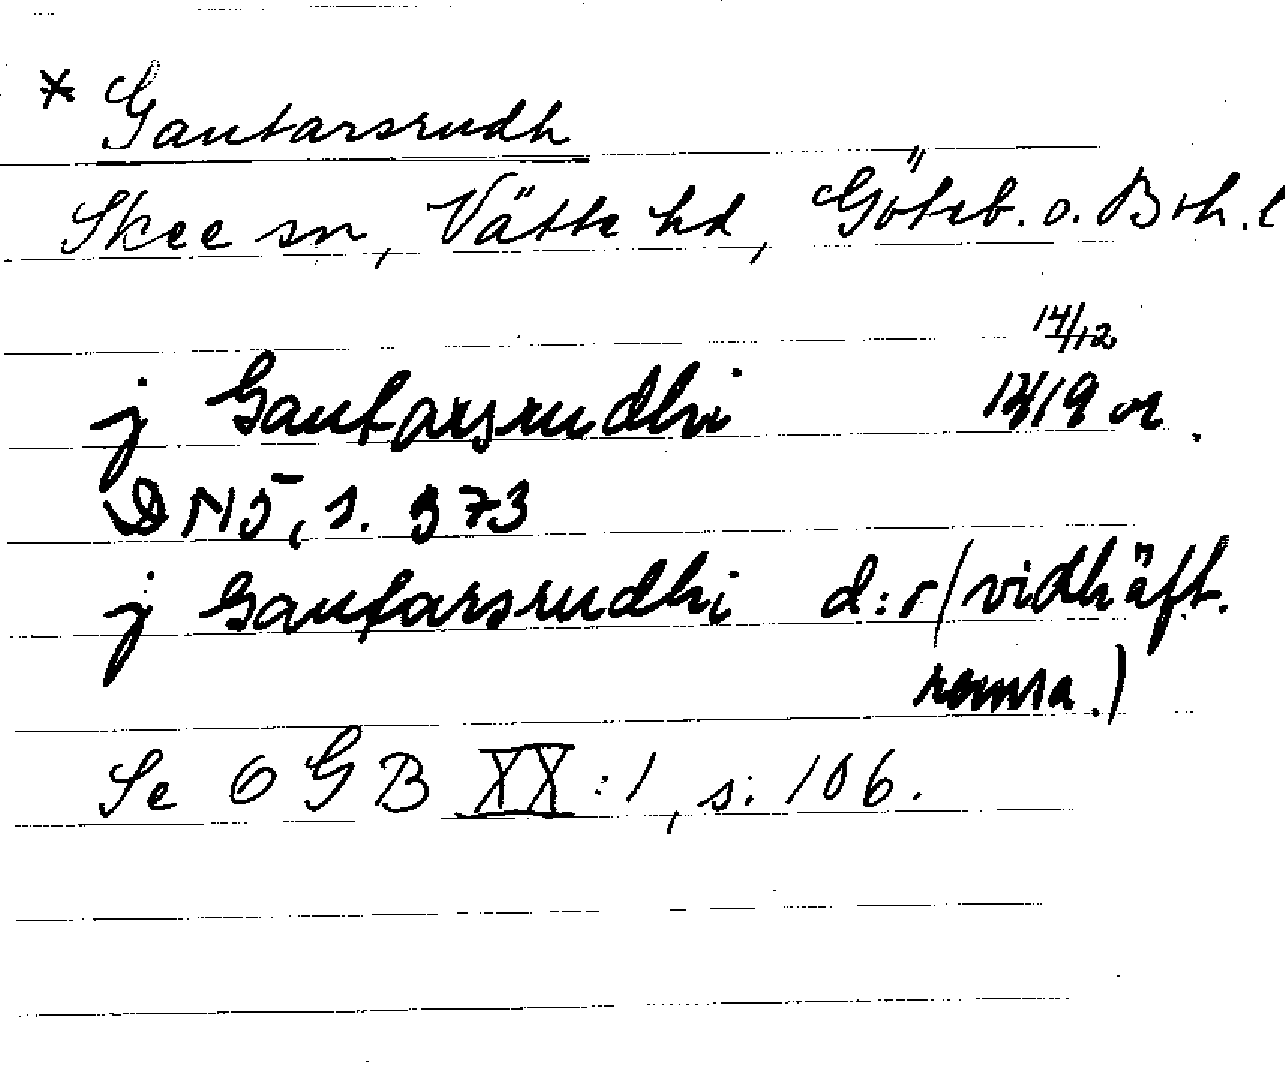 * Gautarsrudh
Skee sn, Vätte hd, Göteb. o. Boh. l
14/12
j Gautarsrudhi 1419 or.
DN5, s. 373
j Gautarsrudhi d:o (vidhäft.
remsa.)
Se OGB XX:1, s. 106.